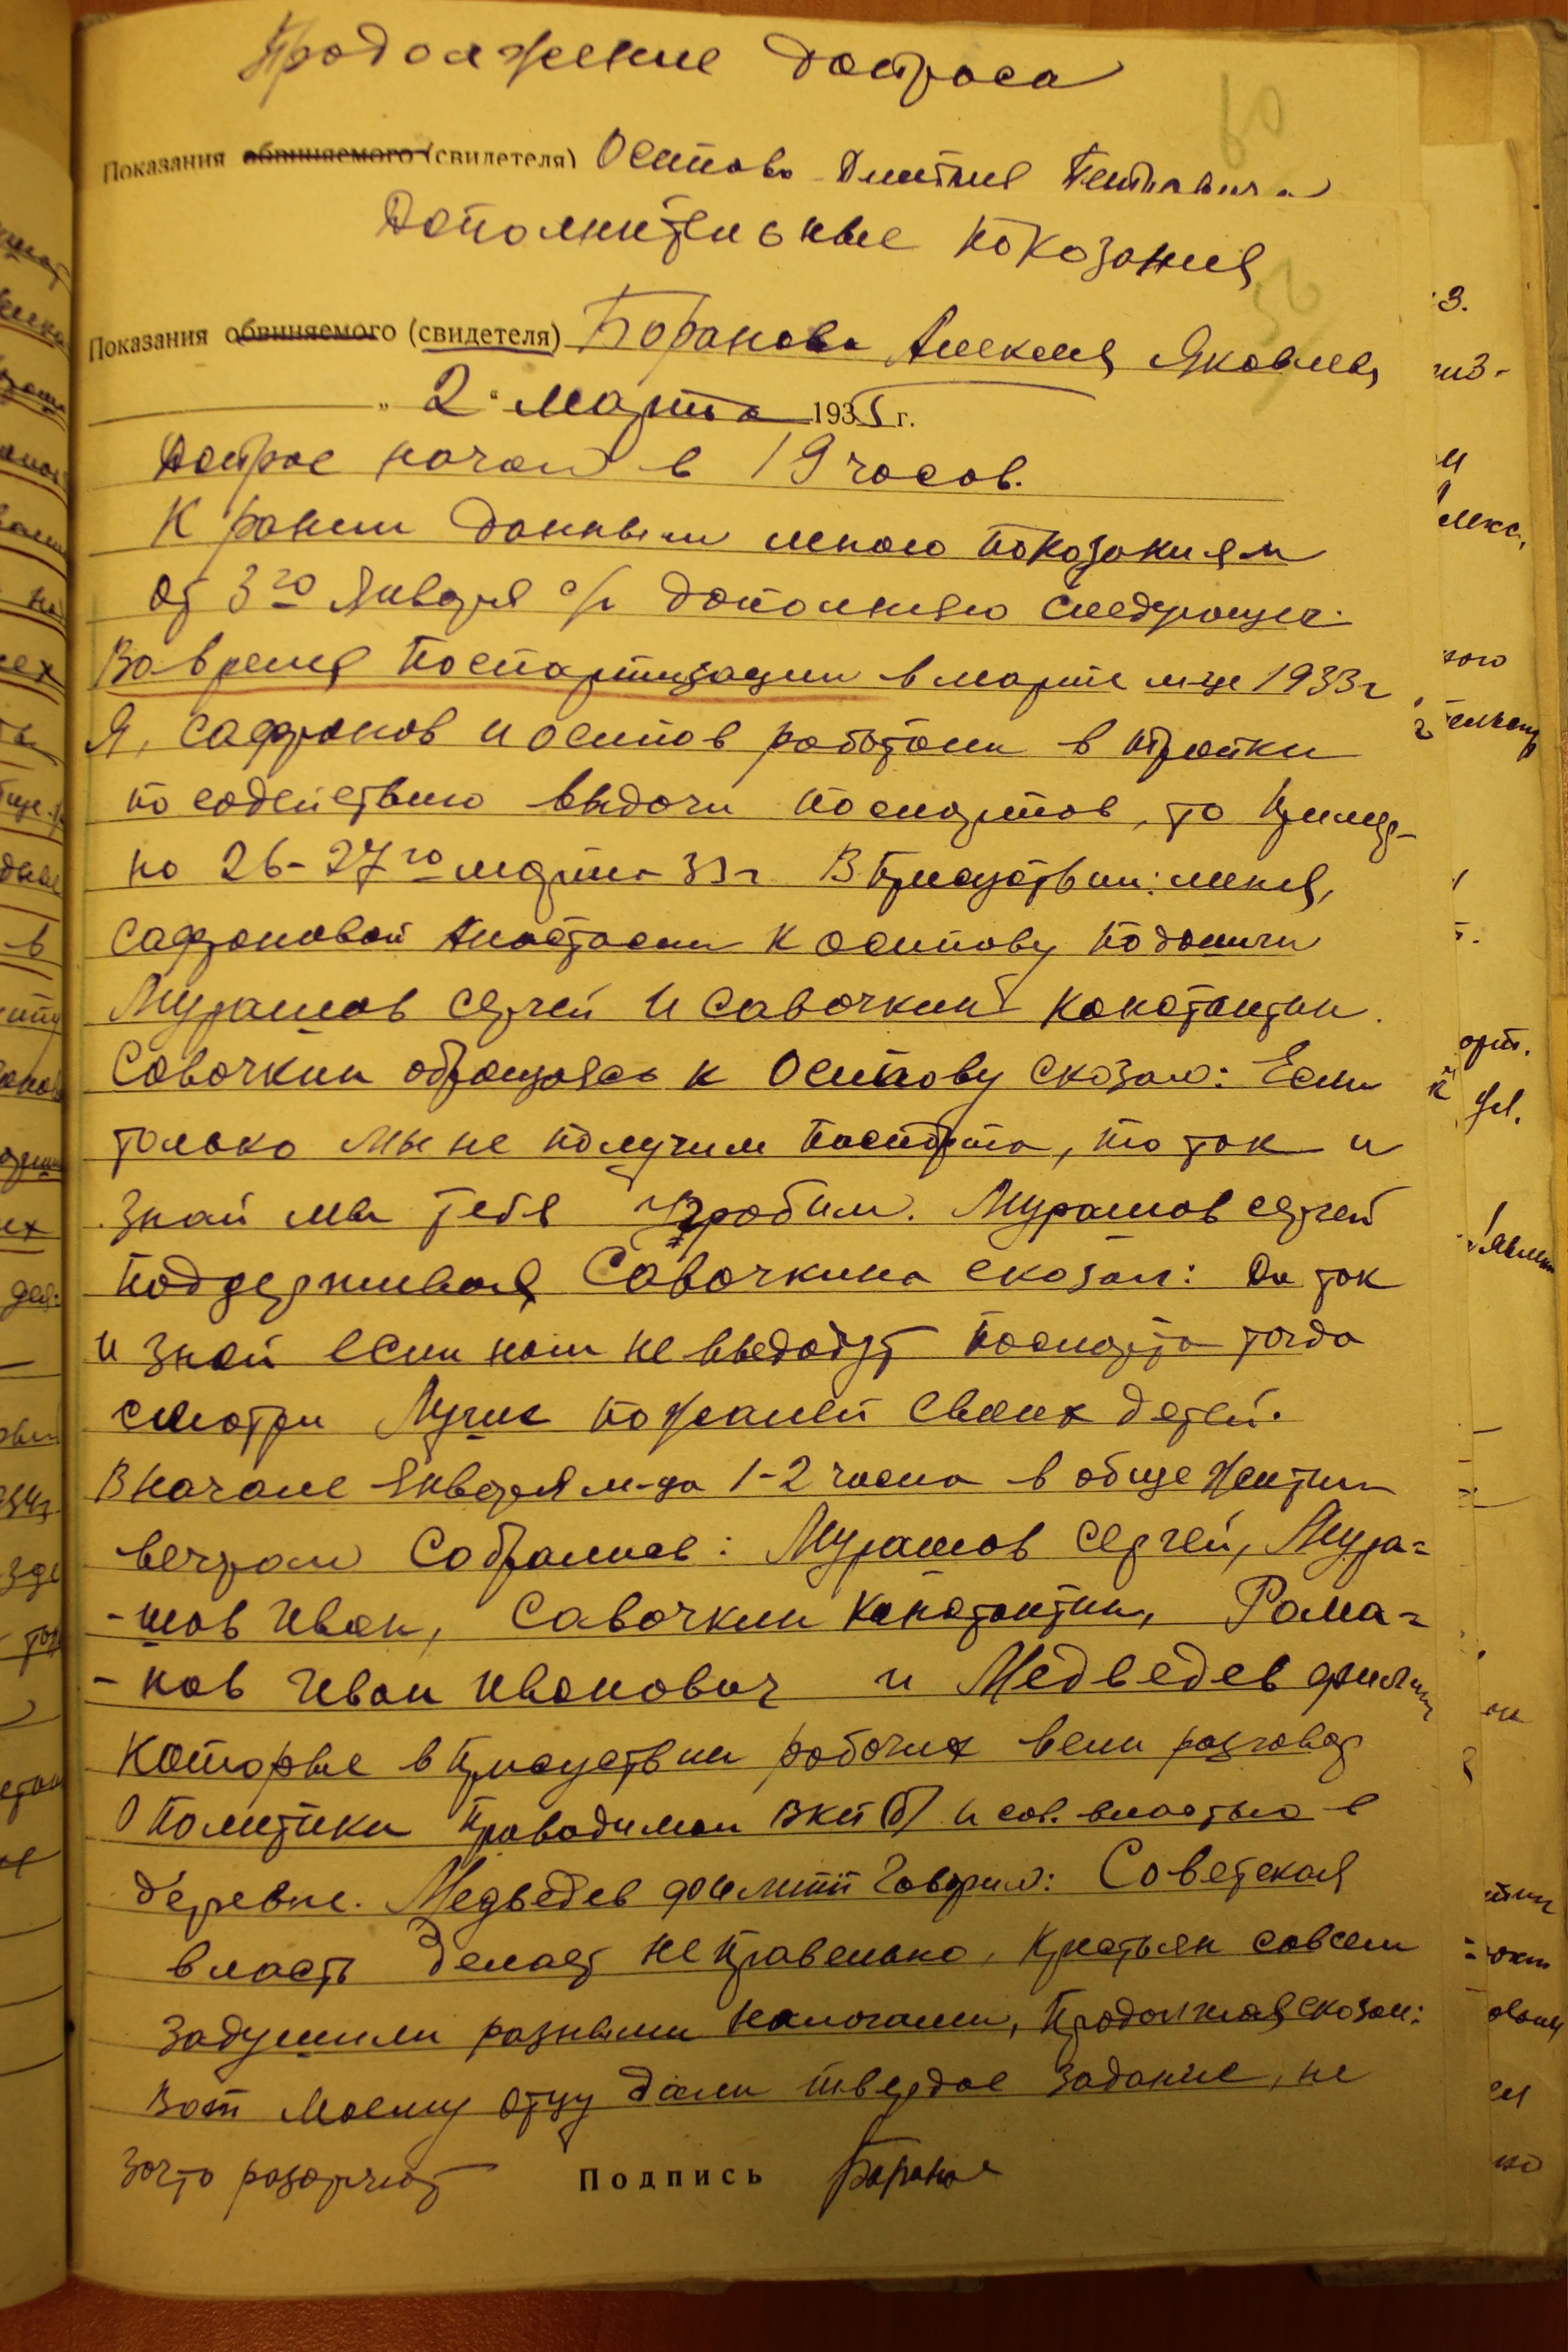 Продолжение допроса
Показания обвиняемого (свидетеля) Осипова Дмитрия Петровича
Дополнительные показания
Показания обвиняемого (свидетеля) Боранова Алексея Яковлев.
„ 2 “ марта 1935 г.
Допрос начат в 19 часов.
К рании данным мною показаниям
от 3го января с/г дополняю следующее.
Во время поспартизации в марте м-це 1933 г
Я, Сафронов и Осипов работали в тройки
по содействию выдачи поспортов, то пример-
но 26-27го марта 33 г в присутствии: меня,
Сафроновой Анастасии к Осипову подошли
Мурашов Сергей и Савочкин Константин.
Совочкин обращаясь к Осипову сказал: Если
только мы не получим паспорта, то так и
знай мы тебя угробим. Мурашов Сергей
поддерживая Совочкина сказал: Да так
и знай если нам не выдадут поспорта тогда
смотри лучше пожалей своих детей.
В начале января м-ца 1-2 числа в общежитии
вечером собрались: Мурашов Сергей, Мура=
-шов Иван, Савочкин Константин, Рома=
-нов Иван Иванович и Медведев Филипп
которые в присуствии рабочих вели разговор
о политики проводимой ВКП(б) и сов. властью в
деревне. Медведев Филипп говорил: Советская
власть делает неправельно, крестьян совсем
задушили разными налогами, продолжая сказал:
Вот моему отцу дали твердое задание, не
зачто разоряют
Подпись Боранов
60